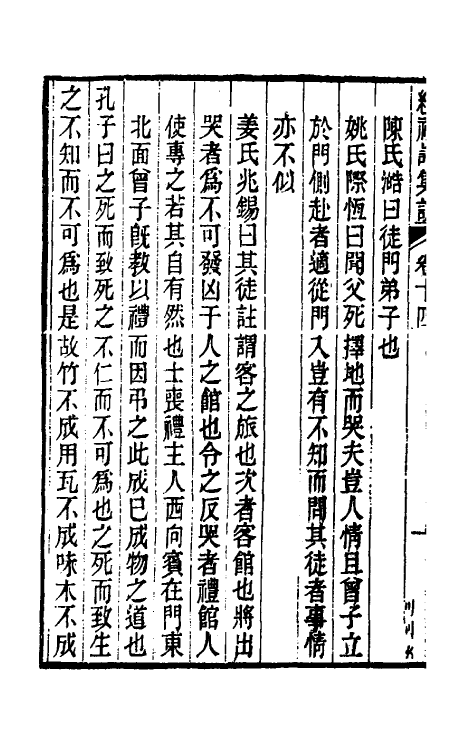 陳氏澔曰徒門弟子也
姚氏際恆曰聞父死擇地而哭夫豈人情且曾子立
於門側赴者適從門入豈有不知而問其徒者事情
亦不似
姜氏兆錫曰其徒註謂客之旅也次者客館也將出
哭者為不可發凶于人之館也令之反哭者禮館人
使專之若其自有然也士喪禮主人西向賓在門東
北面曾子旣教以禮而因弔之此成巳成物之道也
孔子曰之死而致死之不仁而不可為也之死而致生
之不知而不可為也是故竹不成用瓦不成味木不成